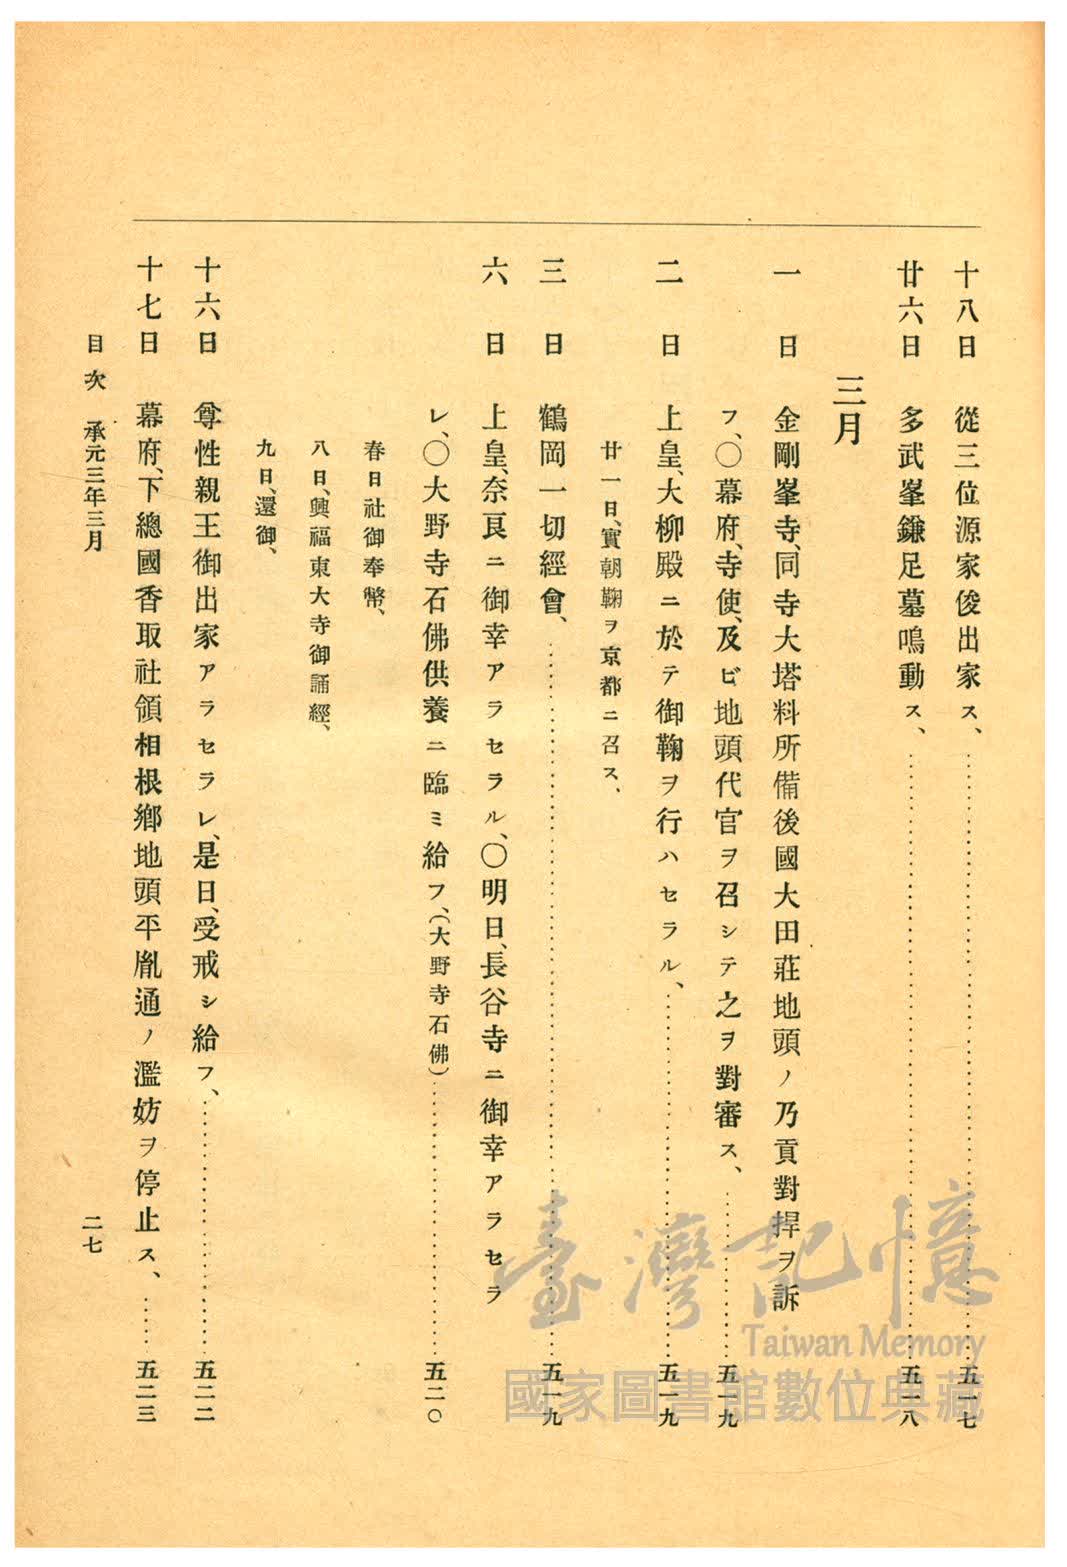 十八日 從三位源家俊出家ス、……五一七
廿六日 多武峯鎌足墓鳴動ス、……五一八
三月
一日 金剛峯寺、同寺大塔料所備後國大田莊地頭ノ乃貢對捍ヲ訴
フ、○幕府、寺使、及ビ地頭代官ヲ召シテ之ヲ對審ス、……五一九
二日 上皇、大柳殿ニ於テ御鞠ヲ行ハセラル、……五一九
廿一日、實朝鞠ヲ京都ニ召ス、
三日 鶴岡一切經會、……五一九
六日 上皇、奈良ニ御幸アラセラル、○明日、長谷寺ニ御幸アラセラ
レ、○大野寺石佛供養ニ臨ミ給フ、(大野寺石佛)……五二〇
春日社御奉幣、
八日、興福東大寺御誦經、
九日、還御、
十六日 尊性親王御出家アラセラレ、是日、受戒シ給フ、……五二二
十七日 幕府、下總國香取社領相根鄕地頭平胤通ノ濫妨ヲ停止ス、……五二三
目次 承元三年三月 二七
臺灣記憶
Taiwan Memory
國家圖書館數位典藏